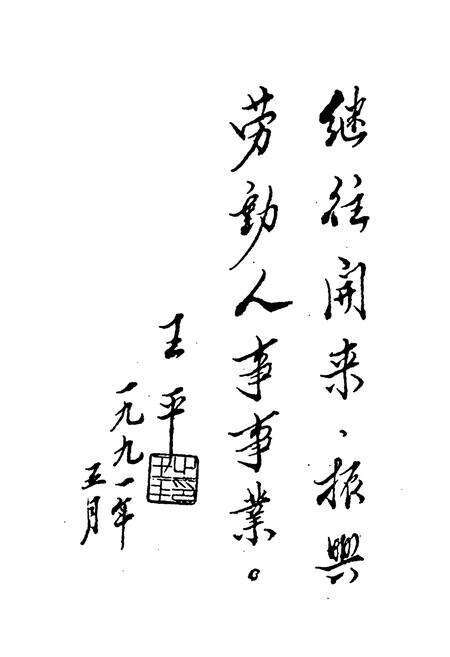 继往開来、振興
劳動人事事業。
王平
一九九一年
五月